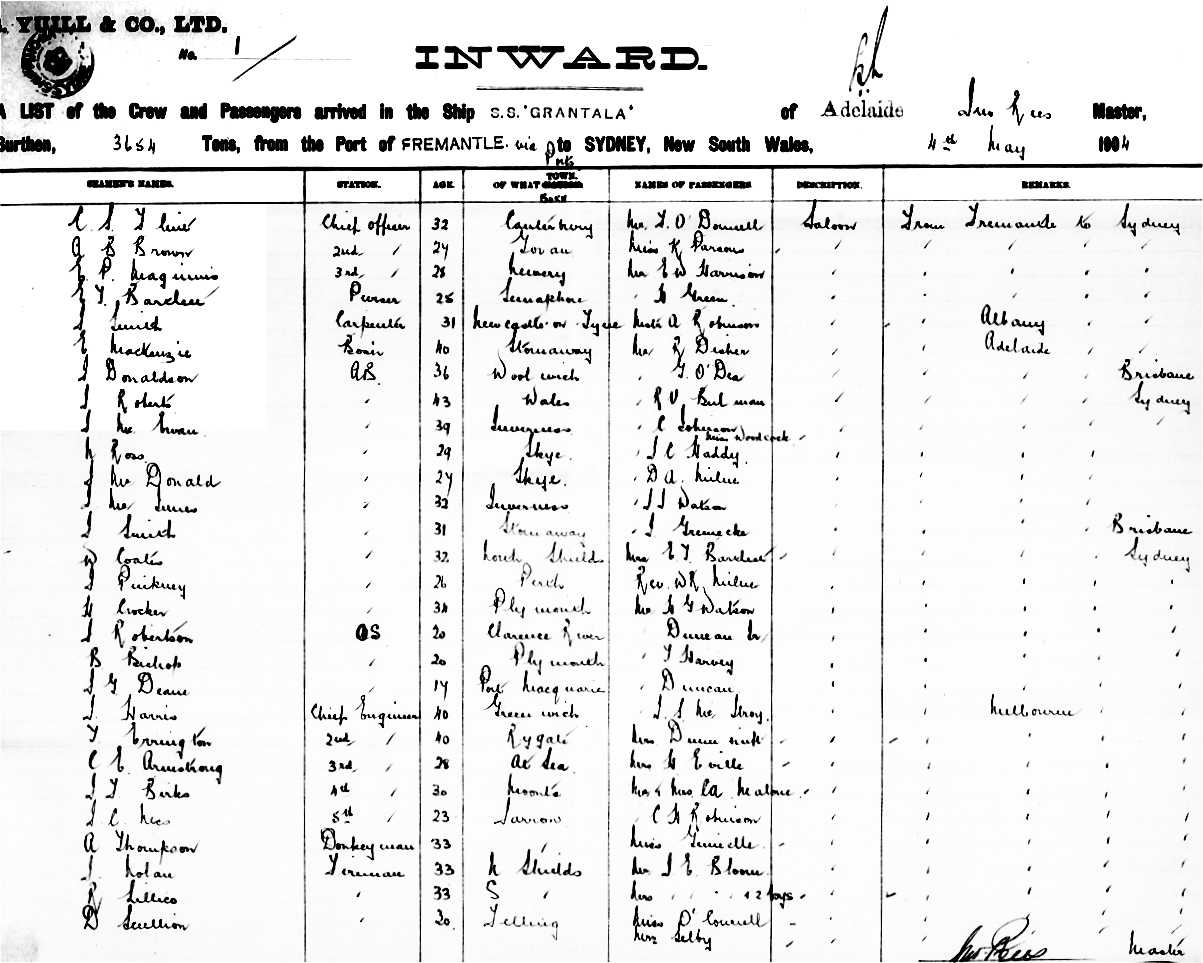 YUILL & CO., LTD.
No. 1
INWARD.
A LIST of the Crew and Passengers arrived in the Ship S.S. "GRANTALA" of Adelaide Jno Rees Master,
Burthen, 3654 Tons, from the Port of FREMANTLE. via Ports to SYDNEY, New South Wales, 4th May 1904
SEAMEN'S NAMES. STATION. AGE. OF WHAT TOWN. NAMES OF PASSENGERS DESCRIPTION. REMARKS.
C. S. Chief Officer 32 Canterbury Mr. J. O'Donnell Saloon From Fremantle to Sydney
A B Brown 2nd " 27 Govan Miss K Parsons " " " " "
P. Maginnis 3rd " 28 Newery Mr E W Harrison " " " " "
Purser 28 Semaphore " H Green " " " " "
Smith Carpenter 31 Newcastle on Tyne A Robinson " " Albany " "
Mackenzie Bosn 40 Stornaway Mr R Disher " " Adelaide " "
Donaldson AB. 36 Woolwich " G. O'Dea " " " " Brisbane
Roberts " 43 Wales " R V. Bulman " " " " Sydney
Mc Ewan " 39 Inverness " C Johnson
Miss Woodcock "
Ross " 29 Skye. " J C Haddy
Mc Donald " 27 Skye. " D A. Milne
Mc Innes " 32 Inverness " J J Watson
J Smith " 31 Stornaway " J " " " " Brisbane
W Coates " 32 North Shields Mrs E T. " " " " Sydney
J Pinkney " 26 Perth Rev. W R. Milne
H Crocker " 34 Plymouth Mr H G Watson
J Robertson OS 20 Clarence River " Duncan Jr
B Bishop " 20 Plymouth " T Harvey
J G Deane " 17 Port Macquarie " Duncan
J. Harris Chief Engineer 40 Greenwich " J. S. Mc " " Melbourne " "
T Errington 2nd " 40 Rygate Mrs
C E. Armstrong 3rd " 28 At Sea Mrs H Eville
J T Birks 4th " 30 Moonta Mr & Mrs CA Malone
J C. Mees 5th " 23 Jarrow " C H Robinson
A Thompson Donkeyman 33 " Miss
J. Nolan Fireman 33 N Shields Mr J E. Bloom
R Sillico " 33 S " Mrs " " " & 2 boys
D Scullion " 30 Felling Miss O'Connell
Mrs Selby
Jno Rees Master